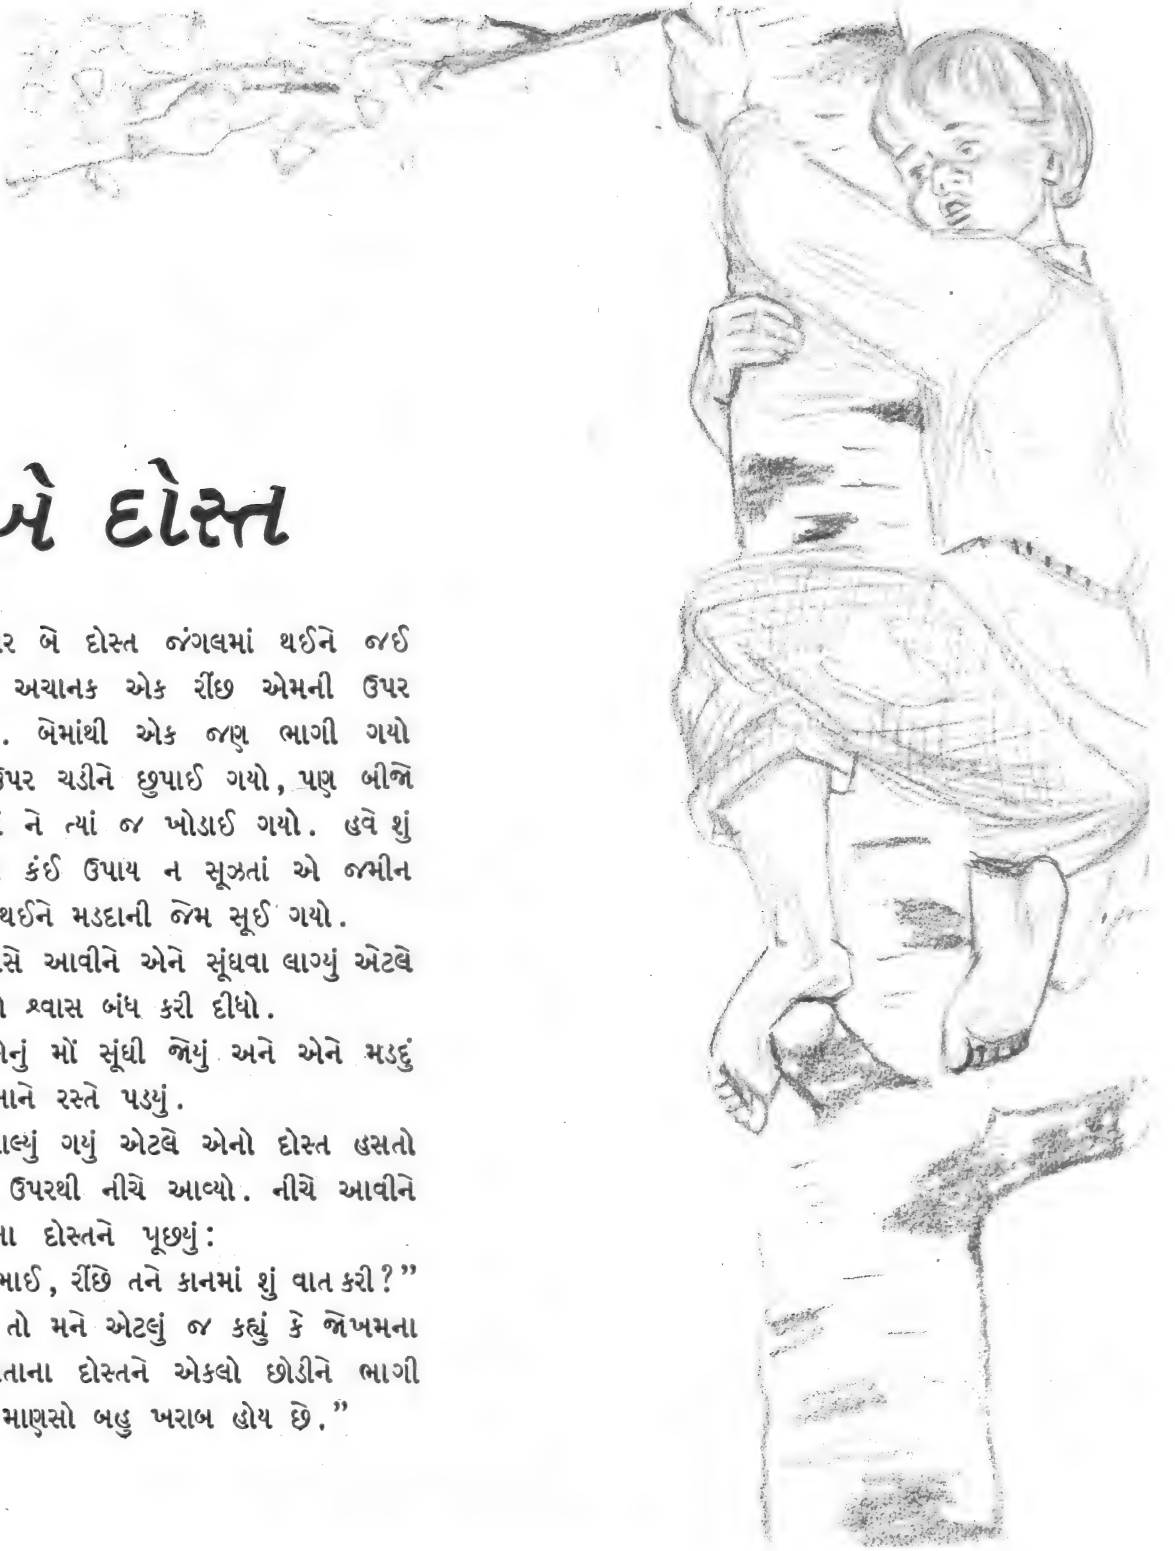 બે દોસ્ત
બે દોસ્ત જંગલમાં થઈને જઈ
અચાનક એક રીંછ એમની ઉપર
. બેમાંથી એક જણ ભાગી ગયો
ચડીને છુપાઈ ગયો, પણ બીજો
ને ત્યાં જ ખોડાઈ ગયો. હવે શું
કંઈ ઉપાય ન સૂઝતાં એ જમીન
થઈને મડદાની જેમ સૂઈ ગયો.
આવીને એને સૂંઘવા લાગ્યું એટલે
શ્વાસ બંધ કરી દીધો.
મોં સૂંઘી જોયું અને એને મડદું
રસ્તે પડયું.
ગયું એટલે એનો દોસ્ત હસતો
ઉપરથી નીચે આવ્યો. નીચે આવીને
દોસ્તને પૂછયું:
ભાઈ, રીંછે તને કાનમાં શું વાત કરી?”
તો મને એટલું જ કહ્યું કે જોખમના
દોસ્તને એકલો છોડીને ભાગી
માણસો બહુ ખરાબ હોય છે.”